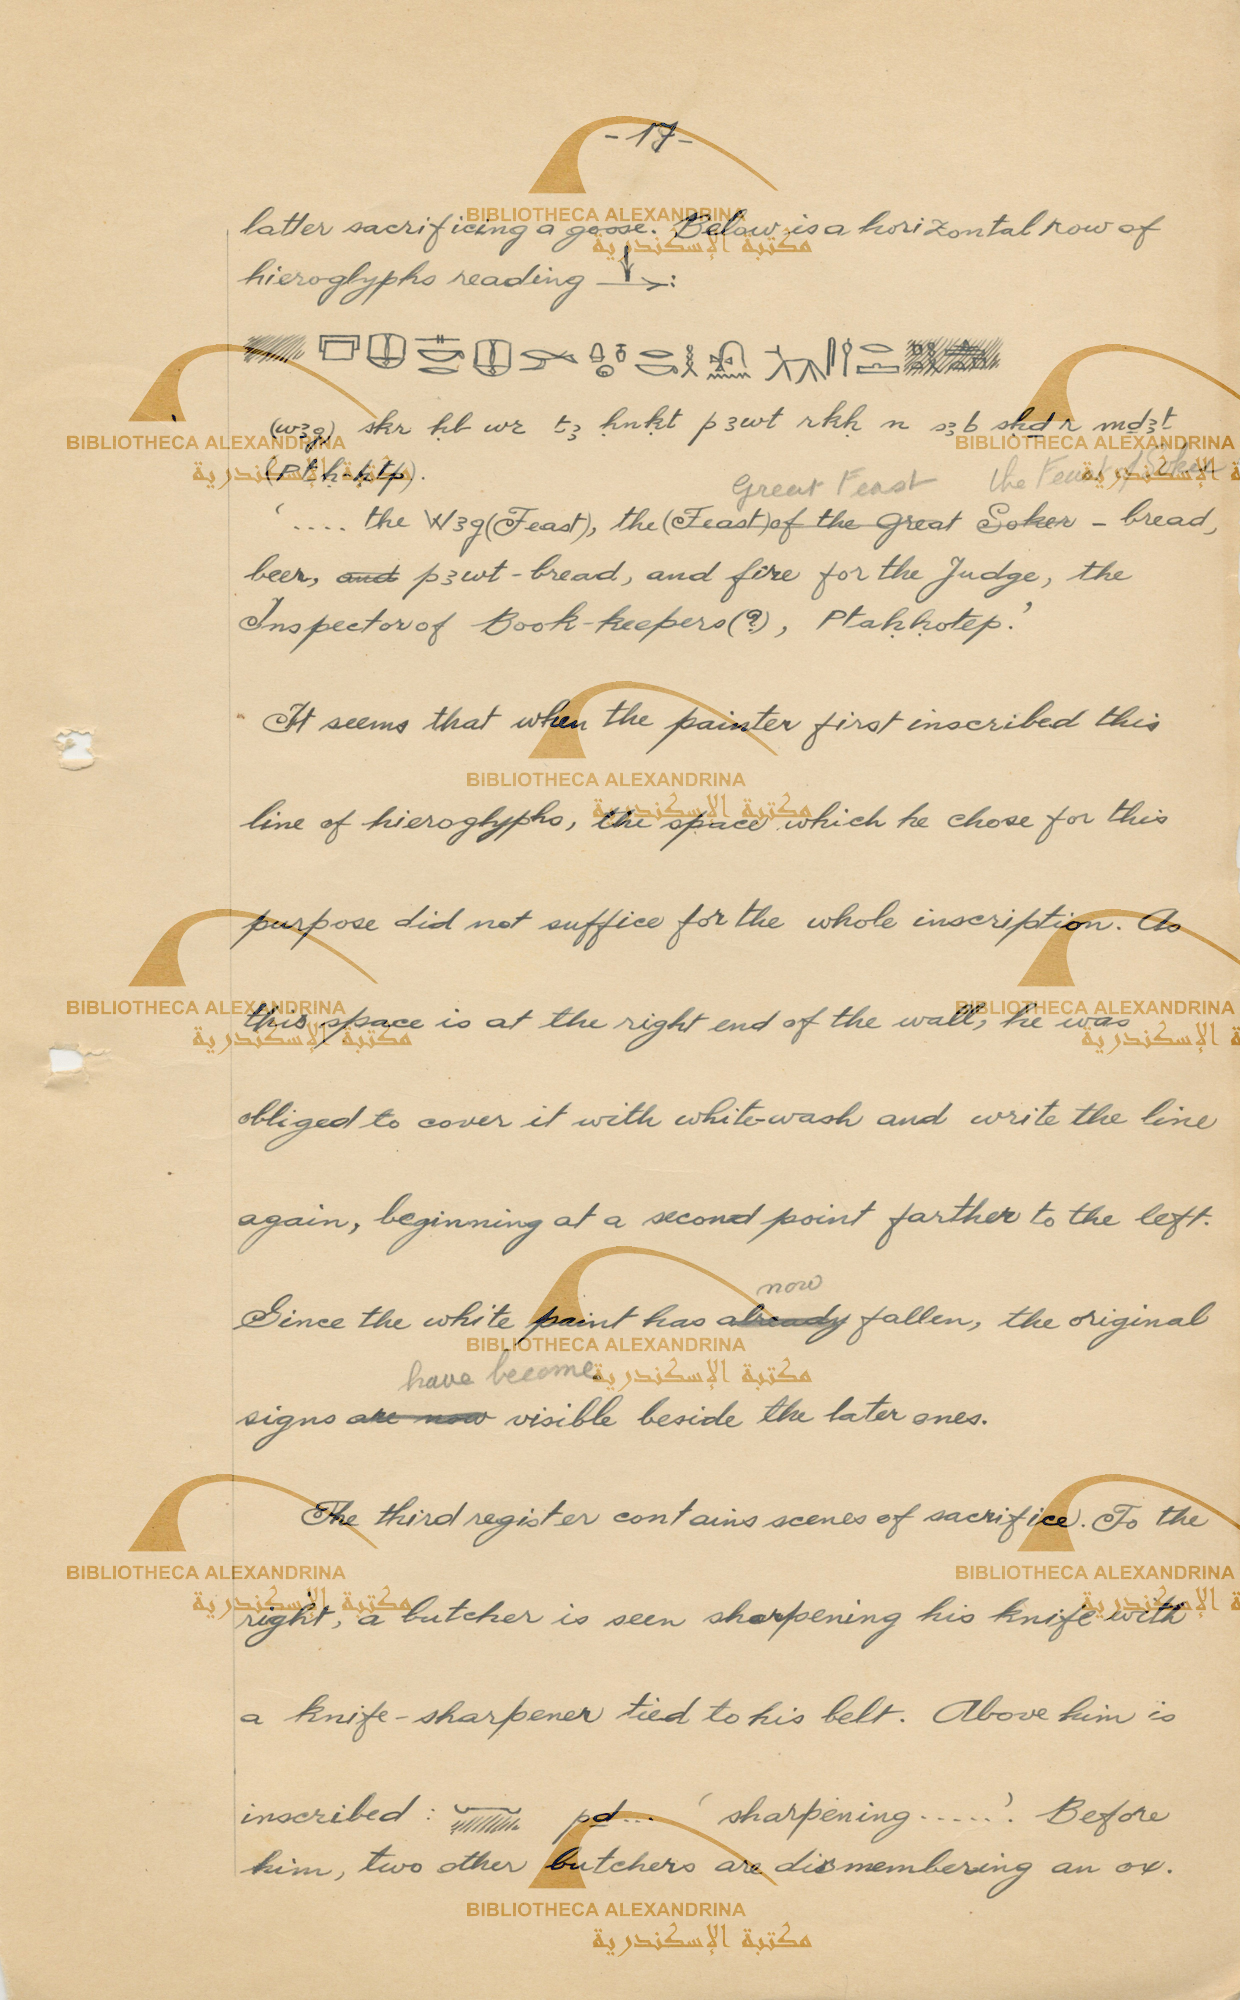 - 17 -
latter sacrificing a goose. Below is a horizontal row of
hieroglyphs reading
(wȝg) skr ḥb wr tȝ ḥnḳt pȝwt rkḥ n sȝb sḥḏ r mḏȝt
(Ptḥ-ḥtp).
Great Feast the Feast of Soker
'.... the Wȝg (Feast), the (Feast) of the Great Soker - bread,
beer, and pȝwt - bread, and fire for the Judge, the
Inspector of Book-keepers (?), Ptaḥḥotep.'
It seems that when the painter first inscribed this
line of hieroglyphs, the space which he chose for this
purpose did not suffice for the whole inscription. As
this space is at the right end of the wall, he was
obliged to cover it with white-wash and write the line
again, beginning at a second point farther to the left.
now
Since the white paint has already fallen, the original
have become
signs are now visible beside the later ones.
The third register contains scenes of sacrifice. To the
right, a butcher is seen sharpening his knife with
a knife-sharpener tied to his belt. Above him is
inscribed : pḏ... 'sharpening .....'. Before
him, two other butchers are dismembering an ox.
BIBLIOTHECA ALEXANDRINA
مكتبة الإسكندرية